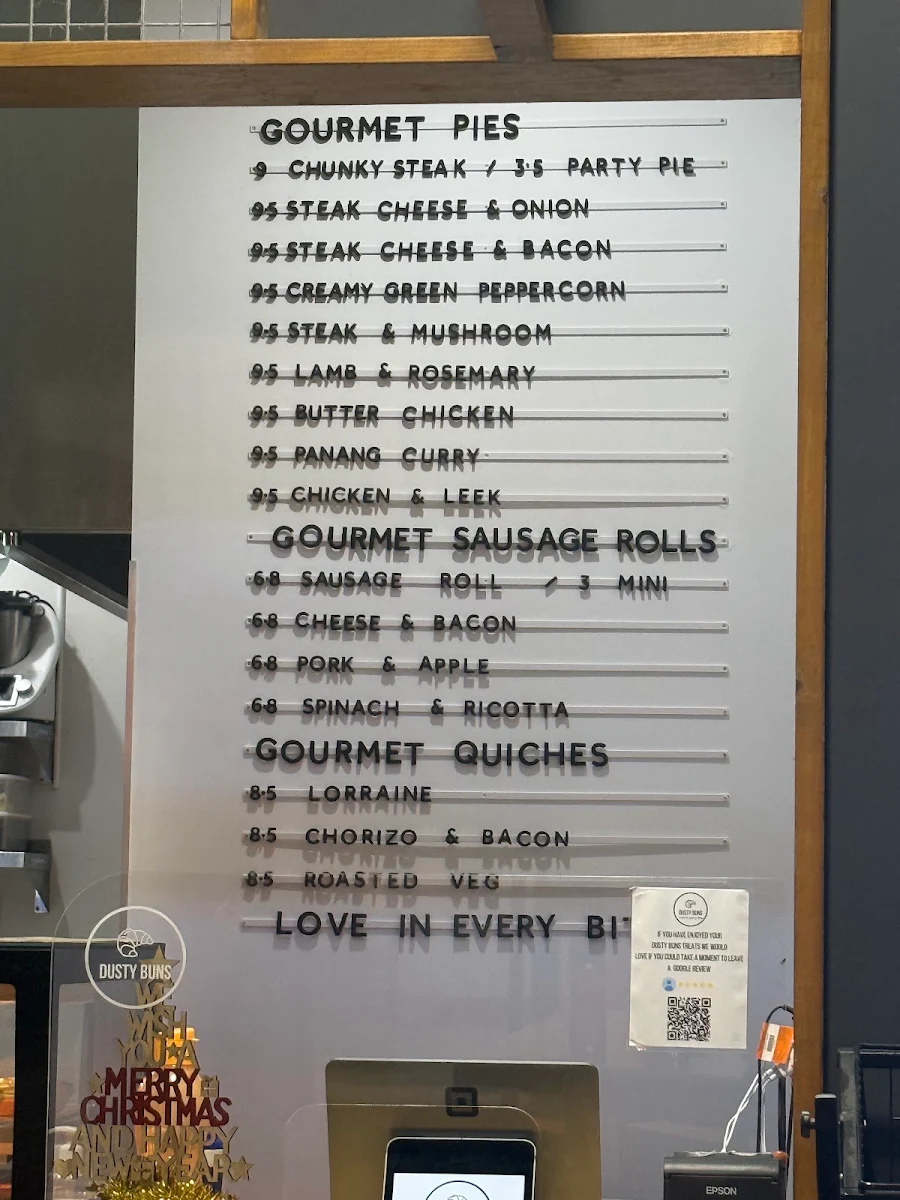 GOURMET PIES
9 CHUNKY STEAK / 3.5 PARTY PIE
9.5 STEAK CHEESE & ONION
9.5 STEAK CHEESE & BACON
9.5 CREAMY GREEN PEPPERCORN
9.5 STEAK & MUSHROOM
9.5 LAMB & ROSEMARY
9.5 BUTTER CHICKEN
9.5 PANANG CURRY
9.5 CHICKEN & LEEK
GOURMET SAUSAGE ROLLS
6.8 SAUSAGE ROLL / 3 MINI
6.8 CHEESE & BACON
6.8 PORK & APPLE
6.8 SPINACH & RICOTTA
GOURMET QUICHES
8.5 LORRAINE
8.5 CHORIZO & BACON
8.5 ROASTED VEG
LOVE IN EVERY BIT
DUSTY BUNS
IF YOU HAVE ENJOYED YOUR
DUSTY BUNS TREATS WE WOULD
LOVE IF YOU COULD TAKE A MOMENT TO LEAVE
A GOOGLE REVIEW
DUSTY BUNS
WE
WISH
YOU A
MERRY
CHRISTMAS
AND HAPPY
NEW YEAR
EPSON